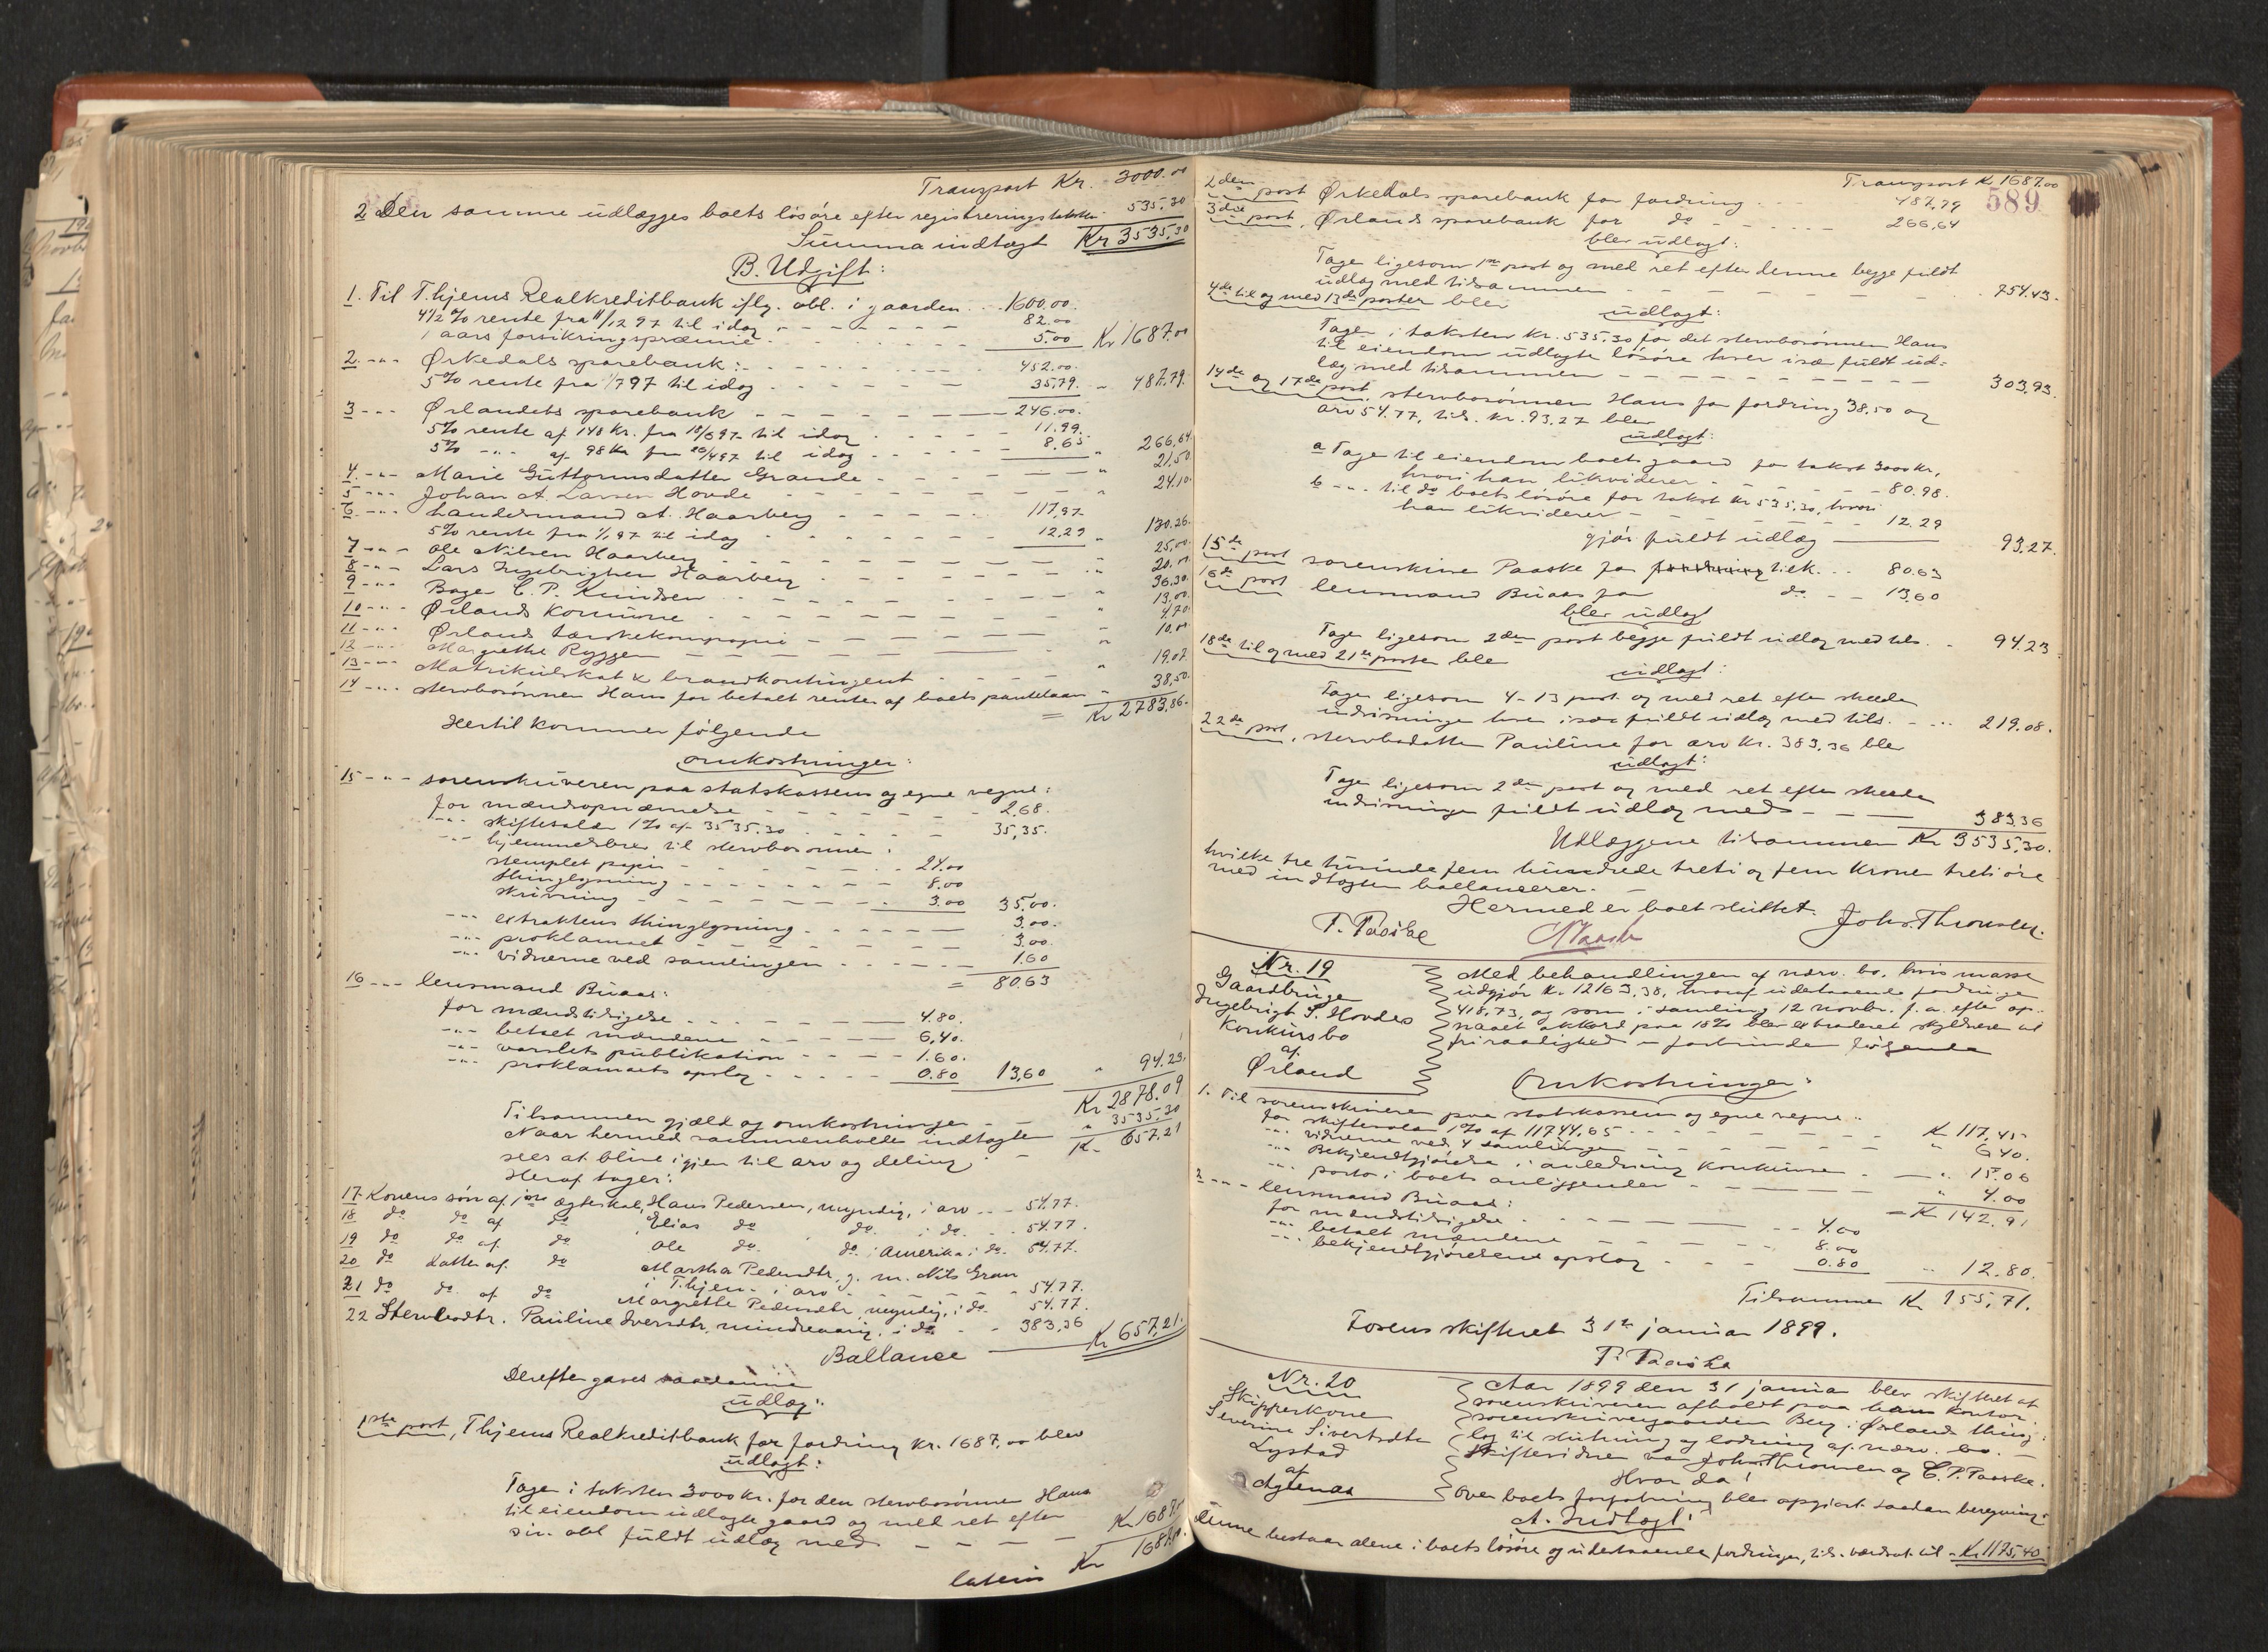 Transport Kr. 3000.00
2 Den samme udlægges boets løsøre efter registreringstaksten 535,30
Summa indtægt Kr 3535,30
B. Udgift:
1. Til T.hjems Realkreditbank iflg. obl. i gaarden . . . 1600.00.
4 1/2 % rente fra 11/12 97 til idag - - - - 82.00
1 aars forsikringspræmie - - - 5.00 Kr 1687.00
2. - " - Ørkedals sparebank: - - - - 452.00.
5 % rente fra 1/7 97 til idag - - - 35,79. - 487,79.
3 - " - Ørlandets sparebank - - - - 246.00.
5 % rente af 148 Kr. fra 18/6 97 til idag - - - 11.99.
5 % - " - af 98 Kr fra 26/4 97 til idag - - - 8.65 " 266,64
4. - " - Marie Guttormsdatter Grande - - - - " 21,50.
5 - " - Johan A. Larsen Hovde - - - - " 24.10.
6. - " - handelsmand A. Haarberg - - - 117,97
5 % rente fra 1/1 97 til idag - - - 12,29 " 130.26.
7 - " - Ole Nilsen Haarberg - - - " 25,00.
8 - " - Lars Ingebrigtsen Haarberg - - - " 20.00.
9 - " - Bager C. P. Knudsen - - - " 36.30.
10 - " - Ørlands Kommune - - - " 13,00.
11 - " - Ørlands tærskekompagni - - - " 4,70.
12 - " - Margrethe Ryggen - - - " 10.00
13 - " - Matrikulskat & brandkontingent - - - " 19.07.
14 - " - stervbosønnen Hans for betalt renter af boets pantelaan " 38,50.
= Kr 2783,86.
Hertil kommer følgende
omkostninger:
15 - " - sorenskriveren paa statskassens og egne vegne:
for mændsopnævnelse - - - 2,68.
- " - skiftesalær 1 % af 3535.30 - - - 35,35.
- " - hjemmelsbrev til stervbosønnen:
stemplet papir - - - 24.00
thinglysning - - - 8.00
skrivning - - - 3.00 35,00.
- " - extraktens thinglysning - - - 3.00.
- " - proklamaet - - - 3.00.
- " - vidnerne ved samlingen - - - 1.60
= 80.63
16 - " - lensmand Buaas:
for mændstilsigelse - - - 4.80.
- " - betalt mændene - - - 6,40.
- " - varslets publikation - - - 1.60.
- " - proklamaets opslag - - - 0.80 13,60 " 94.23.
Kr 2878.09
Tilsammen gjæld og omkostninger - -
Naar hermed sammenholdes indtægten " 3535.30
sees at blive igjen til arv og deling - Kr 657,21
Heraf tager:
17 Konens søn af 1ste ægteskab, Hans Pedersen, myndig, i arv - - 54,77.
18 do do af do Elias do do i do - - 54.77.
19 do do af do Ole do do i Amerika i do. 54.77.
20 do datter af do Martha Pedersdtr. g. m. Nils Gran
i T.hjem - i arv - - - 54.77.
21 do do af do Margrethe Pedersdtr myndig, i do - 54.77.
22 Stervbodtr. Pauline Iversdtr, mindreaarig, i do - - 383,36
Ballance Kr 657,21.
Derefter gaves saadanne
udlæg:
1ste post, T.hjems Realkreditbank for fordring kr. 1687,00 blev
udlagt:
Tager i taksten 3000 kr. for den stervbosønnen Hans
til eiendom udlagte gaard og med ret efter
sin obl fuldt udlæg med - - - Kr. 1687.00
lateris Kr 1687.00.
Transport Kr. 1687.00
589
2den post Ørkedals sparebank for fordring . . . 487,79
3die post, Ørlands sparebank for do - - - 266,64
blev udlagt:
Tager ligesom 1ste post og med ret efter denne begge fuldt
udlæg med tilsammen - - - 754.43.
4de til og med 13de poster blev
udlagt:
Tager i taksten Kr. 535.30 for det stervbosønnen Hans
til eiendom udlagte løsøre hver især fuldt ud-
læg med tilsammen - - - 303,93.
14de og 17de post. stervbosønnen Hans for fordring 38,50 og
arv 54.77, tils. kr. 93.27 blev
udlagt:
a Tager til eiendom boets gaard for takst 3000 kr,
hvori han likviderer - - - 80.98.
b - " - til do boets løsøre for takst kr 535,30, hvori
han likviderer - - - 12.29
gjør fuldt udlæg 93,27.
15de post sorenskriver Paaske for tilk. . . 80.63
16de post lensmand Buaas for do - - 13,60
blev udlagt
Tager ligesom 2den post begge fuldt udlæg med tils. . 94.23
18de til og med 21de poster blev
udlagt:
Tager ligesom 4-13 post og med ret efter skeede
udvisninger hver især fuldt udlæg med tils. - .. 219.08.
22de post. stervbodatter Pauline for arv Kr. 383,36 blev
udlagt:
Tager ligesom 2den post og med ret efter skeede
udvisninger fuldt udlæg med - - 383,36
Udlæggene tilsammen Kr 3535,30.
hvilke tre tusinde fem hundrede treti og fem Kroner treti øre
med indtægten ballancerer. -
Hermed er boet sluttet.
T. Paaske Johs. Thronsen.
Nr. 19
Gaardbruger
Ingebrigt S. Hovdes
Konkursbo
af
Ørland
Med behandlingen af nærv. bo, hvis masse
udgjør Kr. 12163,38, hvoraf udestaaende fordringer
418,73, og som i samling 12 novbr. f. a. efter op-
naaet akkord paa 18 % blev extraderet skyldneren til
friraadighed - forbindes følgende
Omkostninger:
1. Til sorenskriveren paa statskassens og egne vegne:
for skiftesalær 1 % af 11744,65 - - - Kr 117,45
- " - vidnerne ved 4 samlinger - - - " 6 40.
- " - Bekjendtgjørelse i anledning Konkursen - - " 15.06
- " - porto i boets anliggender - - - " 4.00
= Kr 142.91
2 - " - lensmand Buaas:
for mændstilsigelse - - - 4.00
- " - betalt mændene - - - 8.00
- " - bekjendtgjørelsens opslag - - - 0.80 " 12.80.
Tilsammen Kr 155,71.
Fosens skifteret 31te januar 1899.
T. Paaske
Nr. 20
Skipperkone
Severine Sivertsdtr
Lystad
af
Agdenæs
Aar 1899 den 31 januar blev skifteret af
sorenskriveren afholdt paa hans kontor,
sorenskrivergaarden Berg i Ørlands thing-
lag til slutning og lodning af nærv. bo.
Skiftevidner var Johs. Thronsen og C. P. Paaske.
Hvor da!
Over boets forfatning blev opgjort saadan beregning:
A. Indtægt:
Denne bestaar alene i boets løsøre og udestaaende fordringer, tils. værdsat til - Kr. 1175,40.